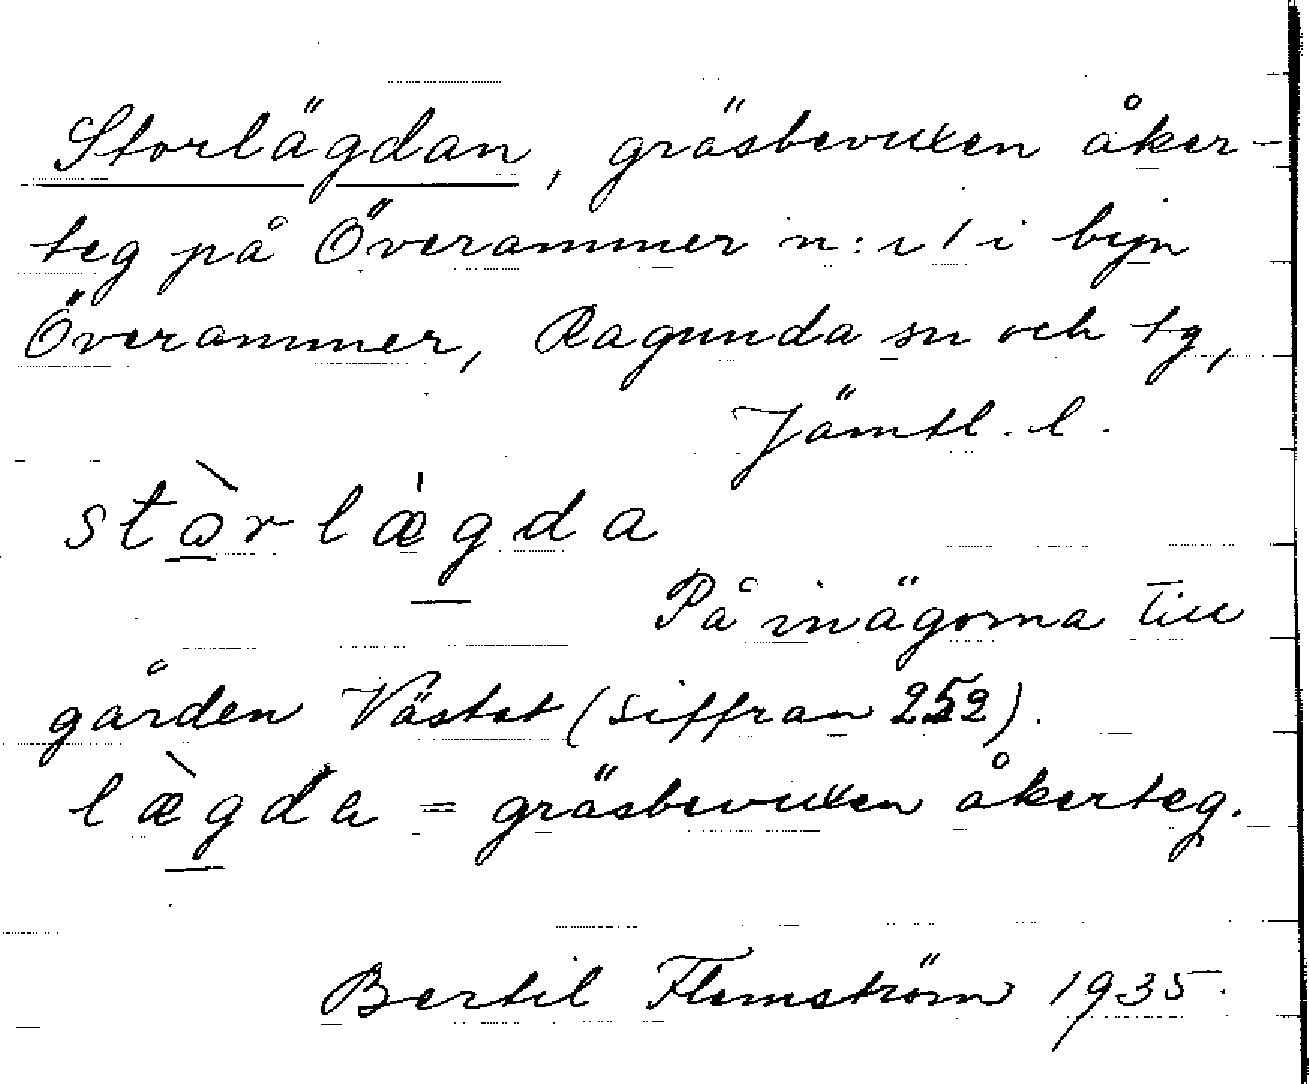 Storlägdan, gräsbevuxen åker-
teg på Överammer n:r 1 i byn
Överammer, Ragunda sn och tg,
Jämtl. l.
stòrlægda
På inägorna till
gården Västet (siffran 252).
lægda = gräsbevuxen åkerteg.
Bertil Flemström 1935.